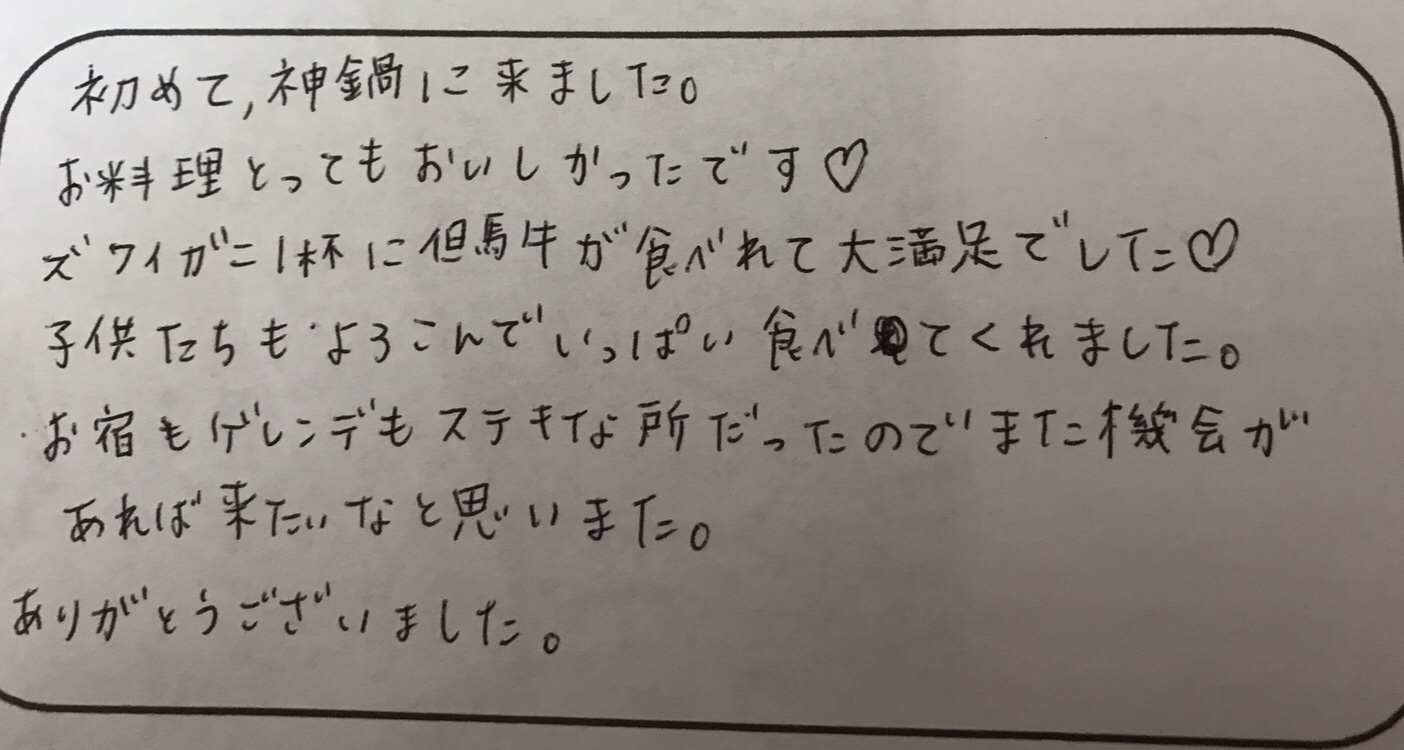 初めて,神鍋に来ました。
お料理とってもおいしかったです♡
ズワイガニ1杯に但馬牛が食べれて大満足でした♡
子供たちもよろこんでいっぱい食べてくれました。
お宿もゲレンデもステキな所だったのでまた機会が
あれば来たいなと思いました。
ありがとうございました。